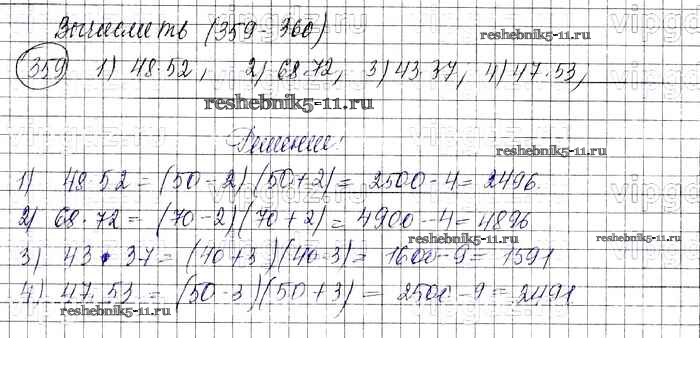 Вычислить (359-360)
reshebnik5-11.ru
359 1) 48·52, 2) 68·72, 3) 43·37, 4) 47·53,
reshebnik5-11.ru
Решение:
reshebnik5-11.ru
1) 48·52 = (50-2)(50+2) = 2500-4 = 2496.
2) 68·72 = (70-2)(70+2) = 4900-4 = 4896
reshebnik5-11.ru
reshebnik5-11.ru
3) 43·37 = (40+3)(40-3) = 1600-9 = 1591
4) 47·53 = (50-3)(50+3) = 2500-9 = 2491
reshebnik5-11.ru